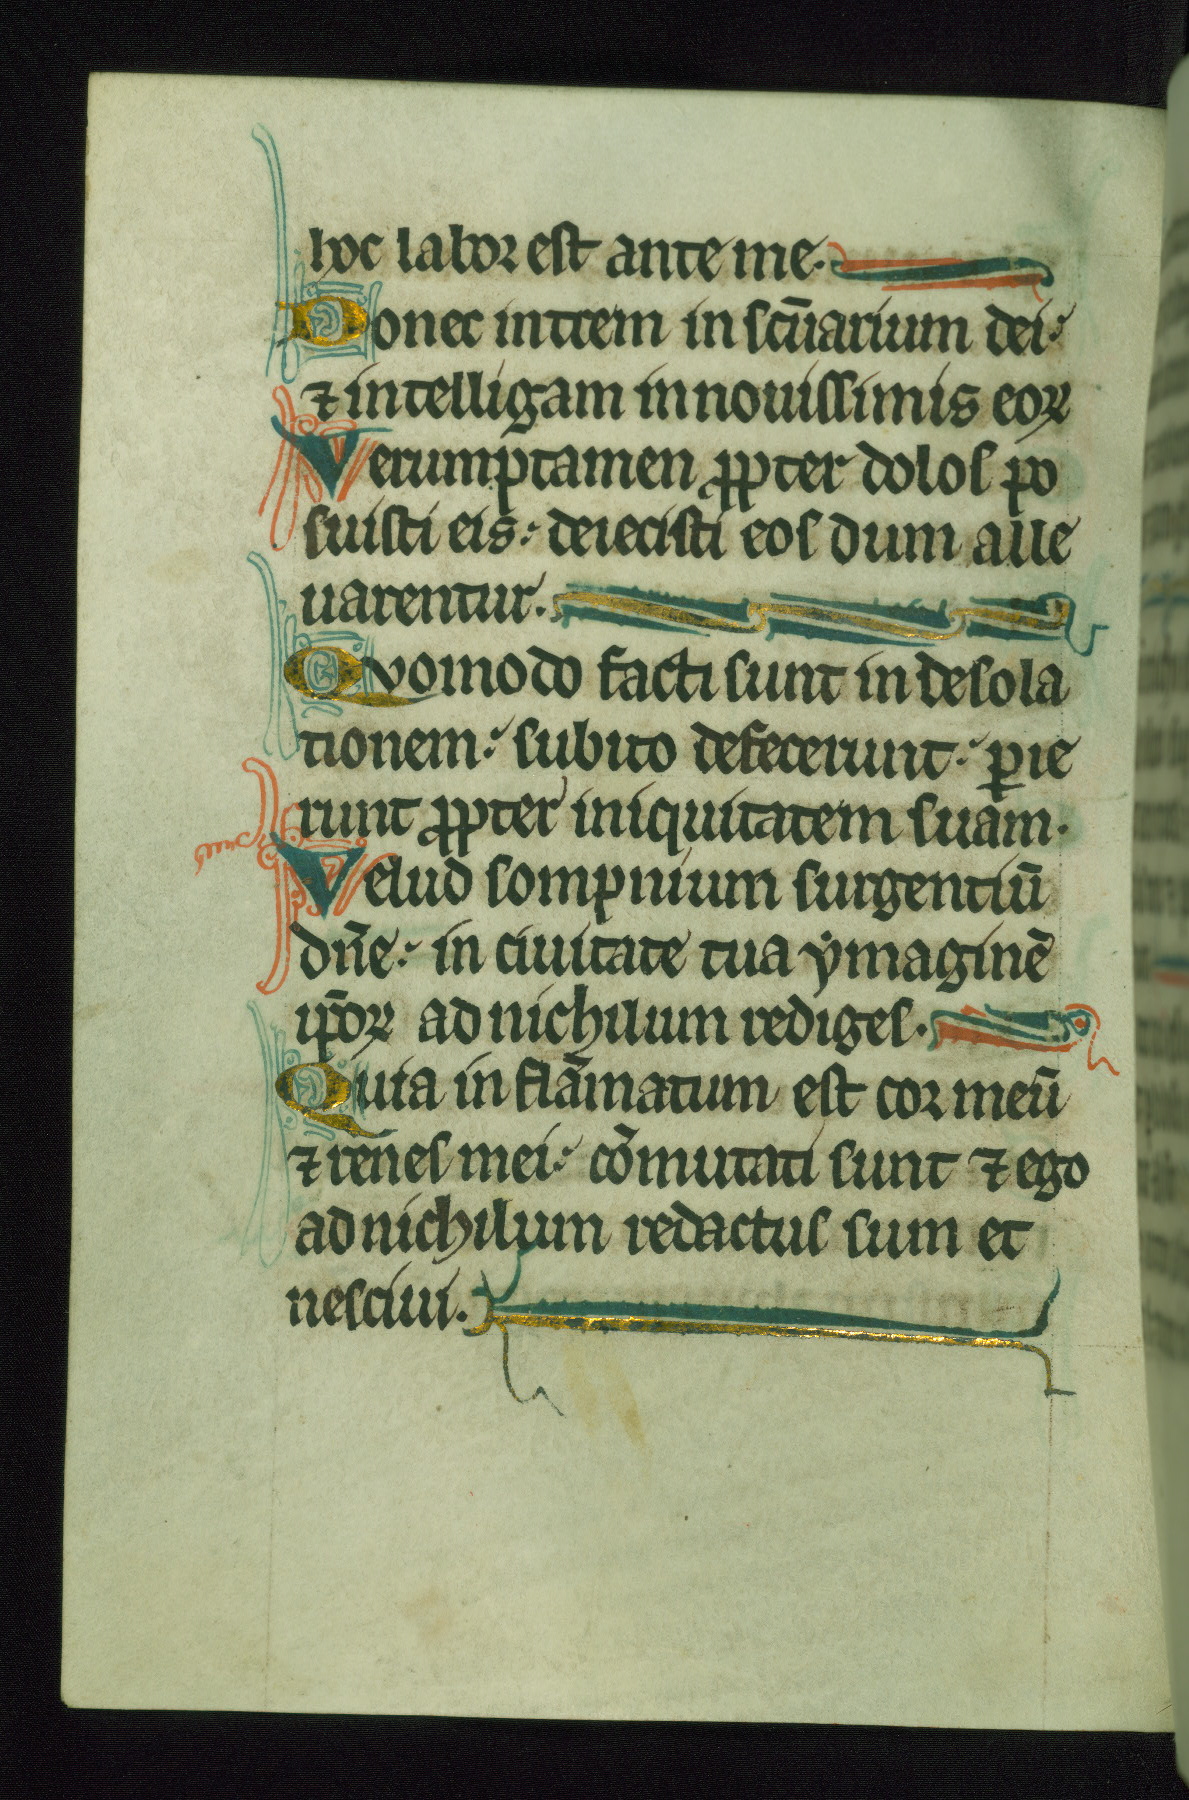 hoc labor est ante me.
Donec intrem in scu̅arium dei
⁊ intelligam in nouissimis eoꝝ
Verumptamen ꝓpter dolos po
suisti eis: deiecisti eos dum alle
uarentur.
Quomodo facti sunt in desola
tionem: subito defecerunt: ꝑie
runt ꝓpter iniquitatem suam.
Velud sompnium surgentiu̅
dn̅e: in ciuitate tua ymagine̅
ip̅oꝝ ad nichilum rediges.
Quia in fla̅matum est cor meu̅
⁊ renes mei: co̅mutati sunt ⁊ ego
ad nichilum redactus sum et
nesciui.